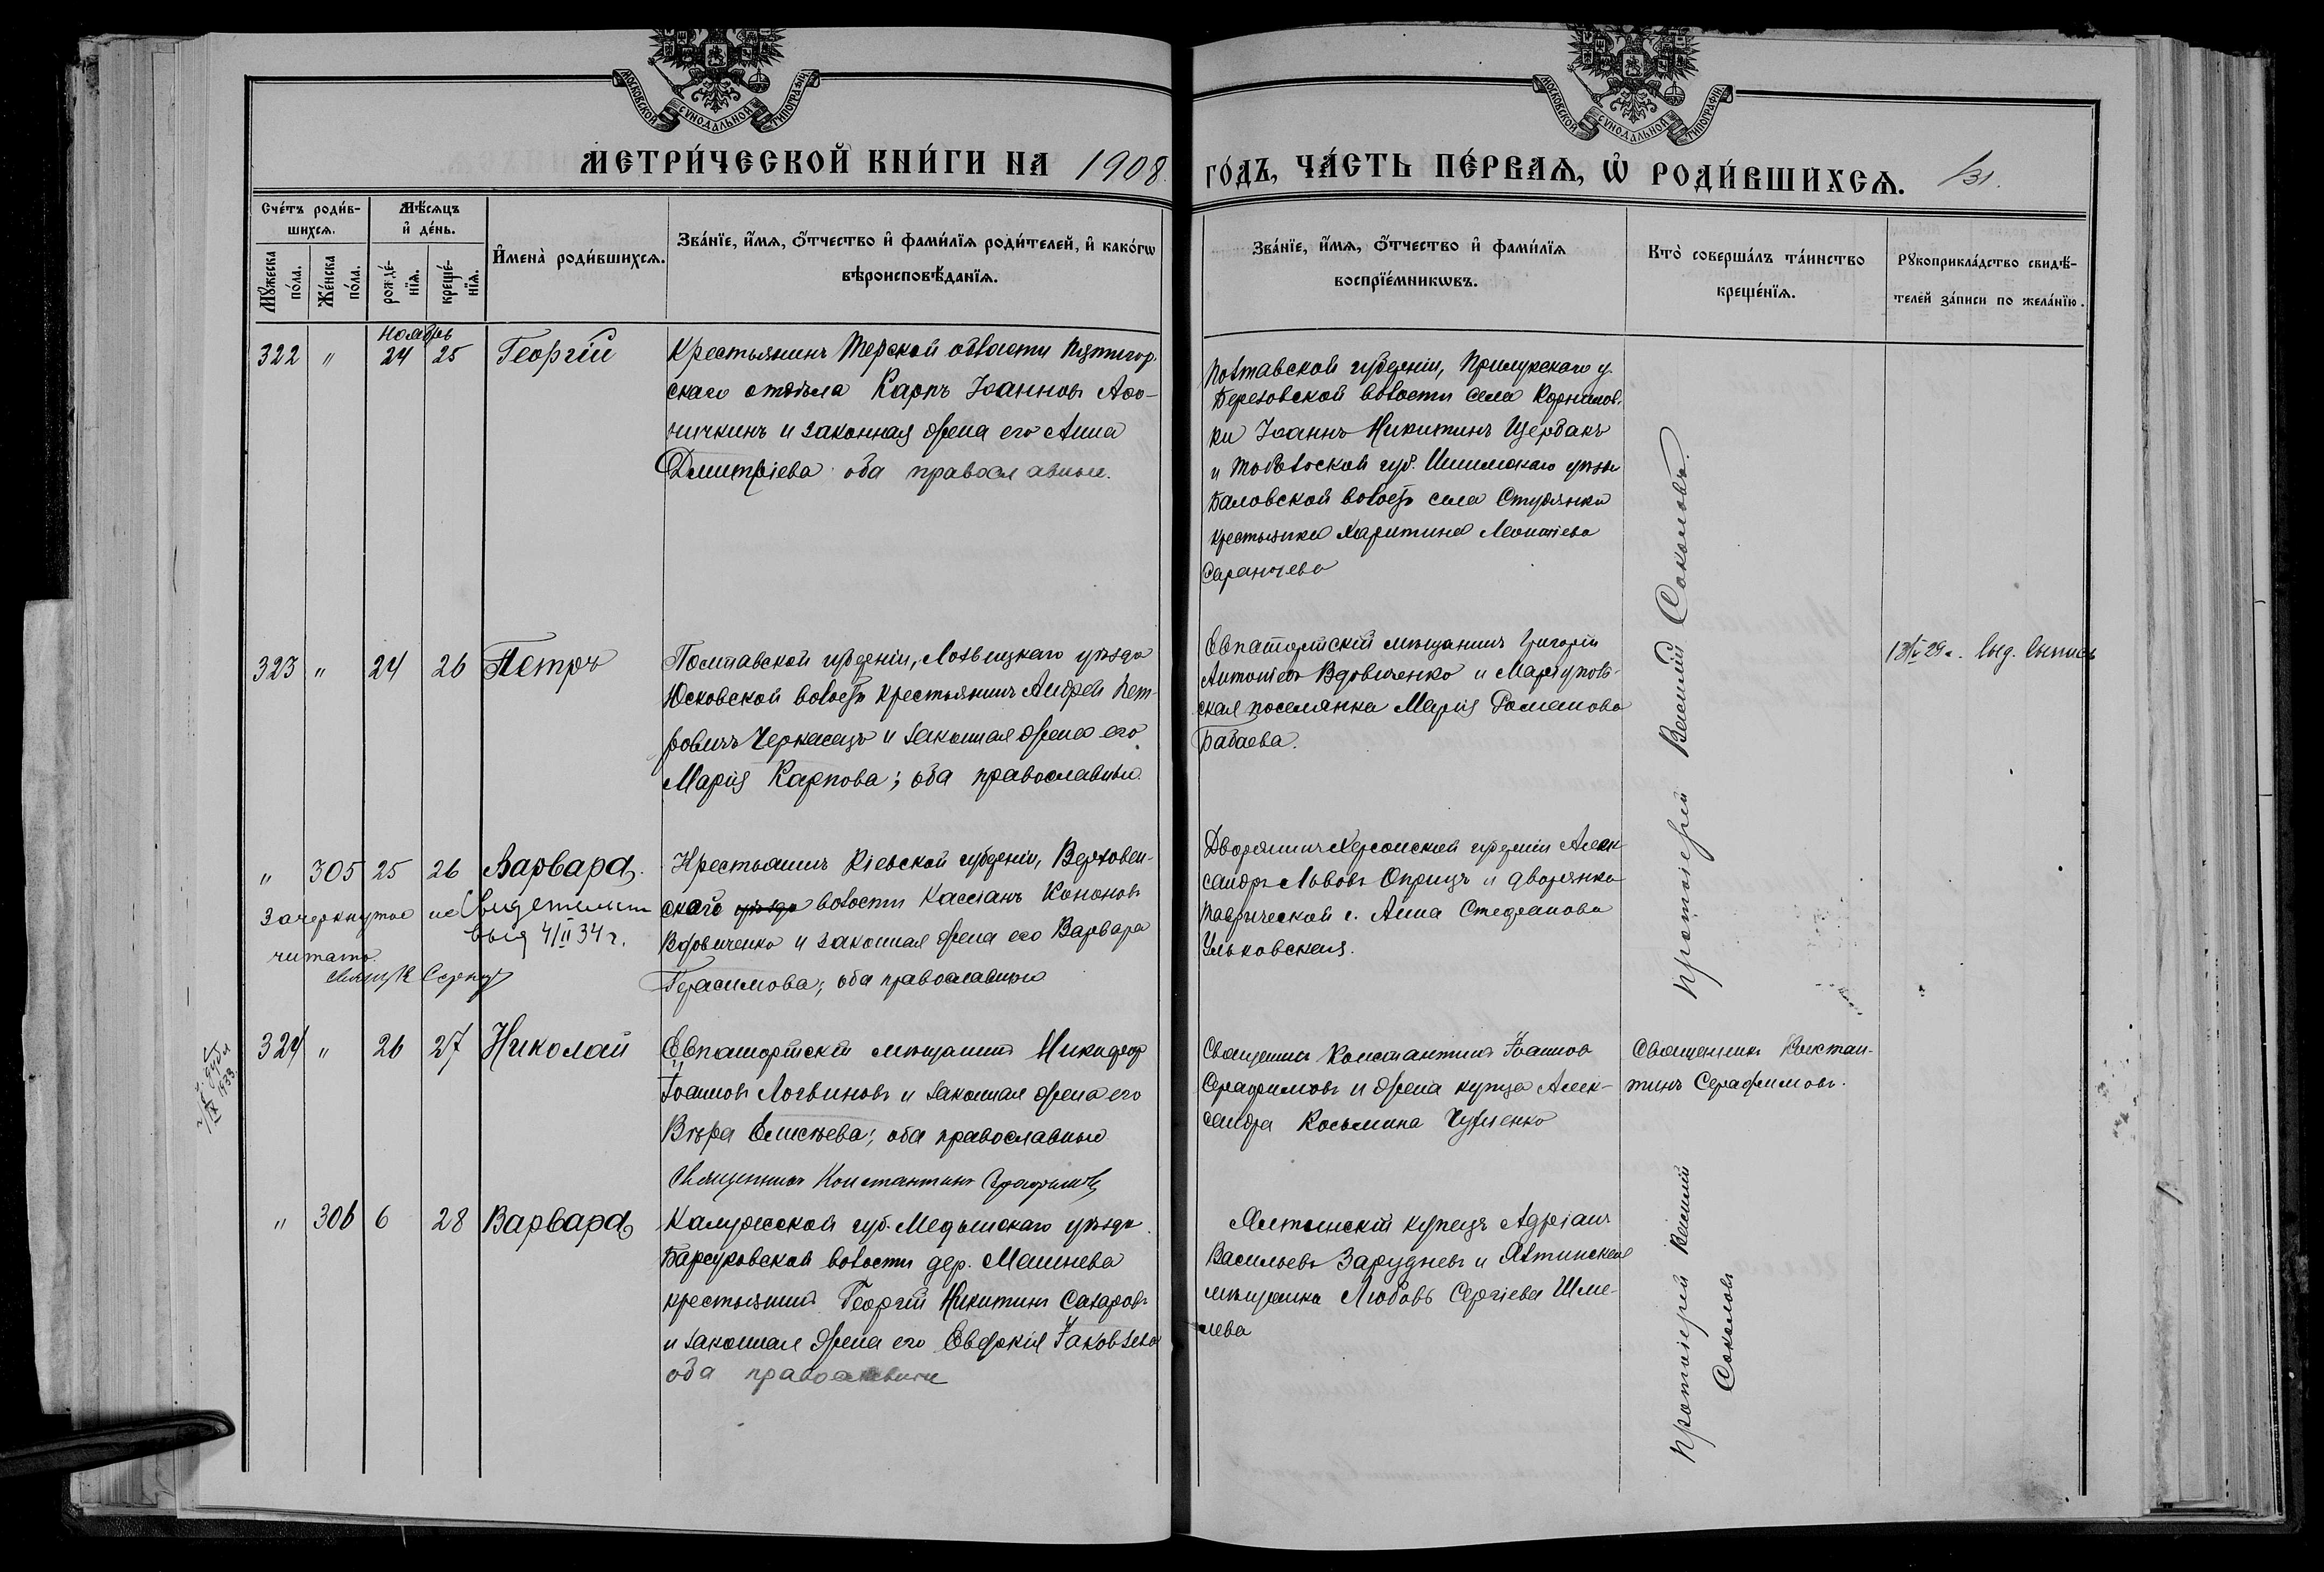 МОСКОВСКОЙ СѴНОДАЛЬНОЙ ТИПОГРАФІИ
МОСКОВСКОЙ СѴНОДАЛЬНОЙ ТИПОГРАФІИ
МЕТРИ́ЧЕСКОЙ КНИ́ГИ НА 1908.
ГО́ДЪ, ЧА́СТЬ ПЕ́РВАѦ, Ѡ҆ РОДИ́ВШИХСѦ. 131.
Сче́тъ роди́в-
шихсѧ.
Мѣ́сѧцъ
и҆ де́нь.
Мꙋ́жеска
по́ла.
Же́нска
по́ла.
рожде́-
нїѧ.
креще́-
нїѧ.
И҆мена̀ роди́вшихсѧ.
Зва́нїе, и҆́мѧ, ѻ҆́тчество и҆ фами́лїѧ роди́телей, и҆ како́гѡ
вѣроисповѣ́данїѧ.
Зва́нїе, и҆́мѧ, ѻ҆́тчество и҆ фами́лїѧ
воспрїе́мникѡвъ.
Кто̀ соверша́лъ та́инство
креще́нїѧ.
Рꙋкоприкла́дство свидѣ́-
телей за́писи по жела́нїю.
Ноябрь
322 " 24 25 Георгій
Крестьянинъ Терской области Пятигор-
скаго отдѣла Карпъ Іоанновъ Афо-
ничкинъ и законная жена его Анна
Димитріева оба православные.
Полтавской губерніи, Прилукскаго у.
Березовской волости села Корнилов-
ки Іоаннъ Никитинъ Щербакъ
и Тобольской губ. Ишимскаго уѣзда
Баловской волости села Студянки
крестьянка Харитина Леонтіева
Саранчева
323 " 24 26 Петръ
Полтавской губерніи, Лохвицкаго уѣзда
Юсковской волости крестьянинъ Андрей Пет-
ровичъ Черкасецъ и законная жена его
Марія Карпова; оба православные.
Евпаторійскій мѣщанинъ Григорій
Антоніевъ Вдовиченко и Маріуполь-
ская поселянка Марія Романова
Бабаева.
Протоіерей Василій Соколовъ.
13/V 29 г. Выд. выпись
" 305 25 26 Варвара.
Зачеркнутое не
читать.
Свидетельст
выд 4/II 34 г.
Крестьянинъ Кіевской губерніи, Верховен-
скаго уѣзда волости Кассіанъ Кононовъ
Вдовиченко и законная жена его Варвара
Герасимова; оба православные
Дворянинъ Херсонской губерніи Алек-
сандръ Львовъ Оприцъ и дворянка
Таврической г. Анна Стефанова
Ульковская.
324 " 26 27 Николай
Евпаторійскій мѣщанинъ Никифоръ
Іоанновъ Логвиновъ и законная жена его
Вѣра Елисѣева; оба православные
Священникъ Константинъ Серафимовъ
Священникъ Константинъ Іоанновъ
Серафимовъ и жена купца Алек-
сандра Косьмина
Священникъ Констан-
тинъ Серафимовъ.
IX 1933.
" 306 6 28 Варвара
Калужской губ. Медынскаго уѣзда
Барсуковской волости дер. Машнева
крестьянинъ Георгій Никитинъ Сахаровъ
и законная жена его Евдокія Іаковлева
оба православные
Ялтинскій купецъ Адріанъ
Васильевъ Зарудневъ и Ялтинская
мѣщанка Любовь Сергіева Шме-
лева
Протоіерей Василій
Соколовъ